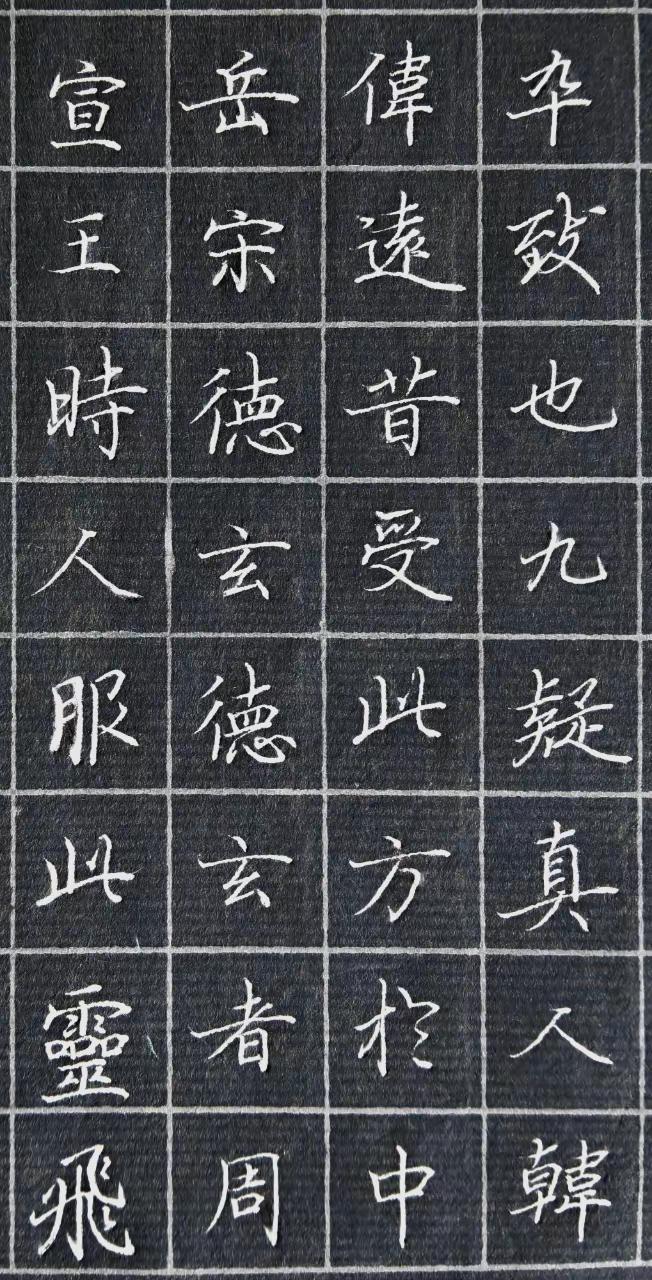 卒致也九疑真人韓
偉遠昔受此方於中
岳宋德玄德玄者周
宣王時人服此靈飛